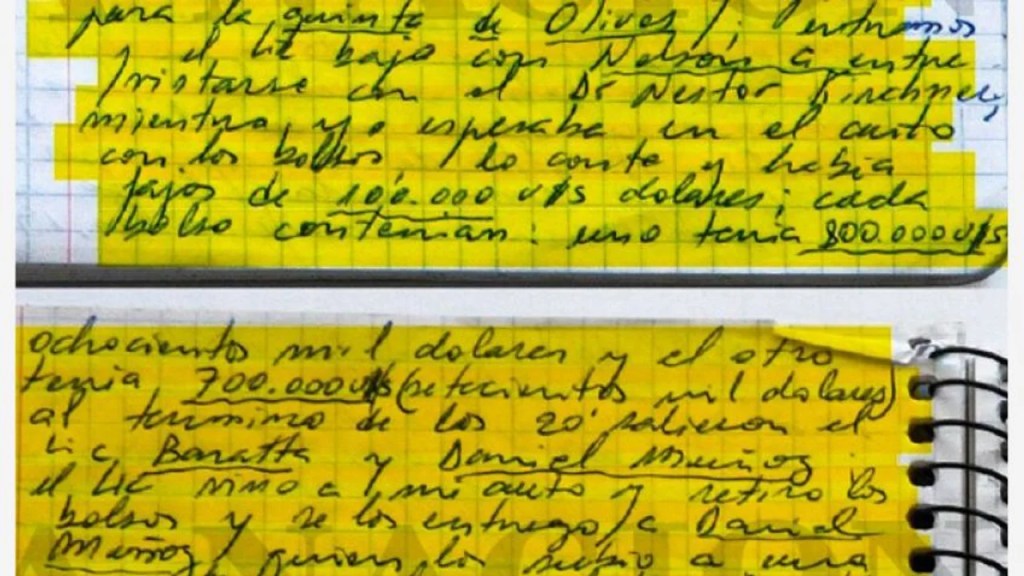 para la quinta de Olivos /; entramos
y el Lic bajo con Nelson G entre
/ristarse con el Dr Nestor Kirchner,
mientras, yo esperaba en el auto
con los bolsos / lo conte y habia
fajos de 100.000 u$s dolares; cada
bolso contenian: uno tenia 800.000 u$s
ochocientos mil dolares y el otro
tenia 700.000 u$s (setecientos mil dolares)
al termino de los 20' salieron el
Lic Baratta y Daniel Muñoz
el Lic vino a mi auto y retiro los
bolsos y se los entrego / a Daniel
Muñoz / quien los subio a una